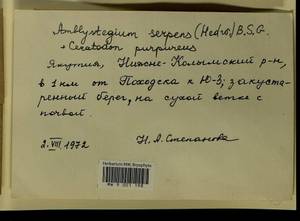 Amblystegium serpens (Hedw.) B.S.G.
+ Ceratodon purpureus
Якутия, Нижне-Колымский р-н,
в 1 км от Походска к Ю-З; закуста-
ренный берег, на сухой ветке с
почвой.
2.VIII.1972
Н.А. Степанова